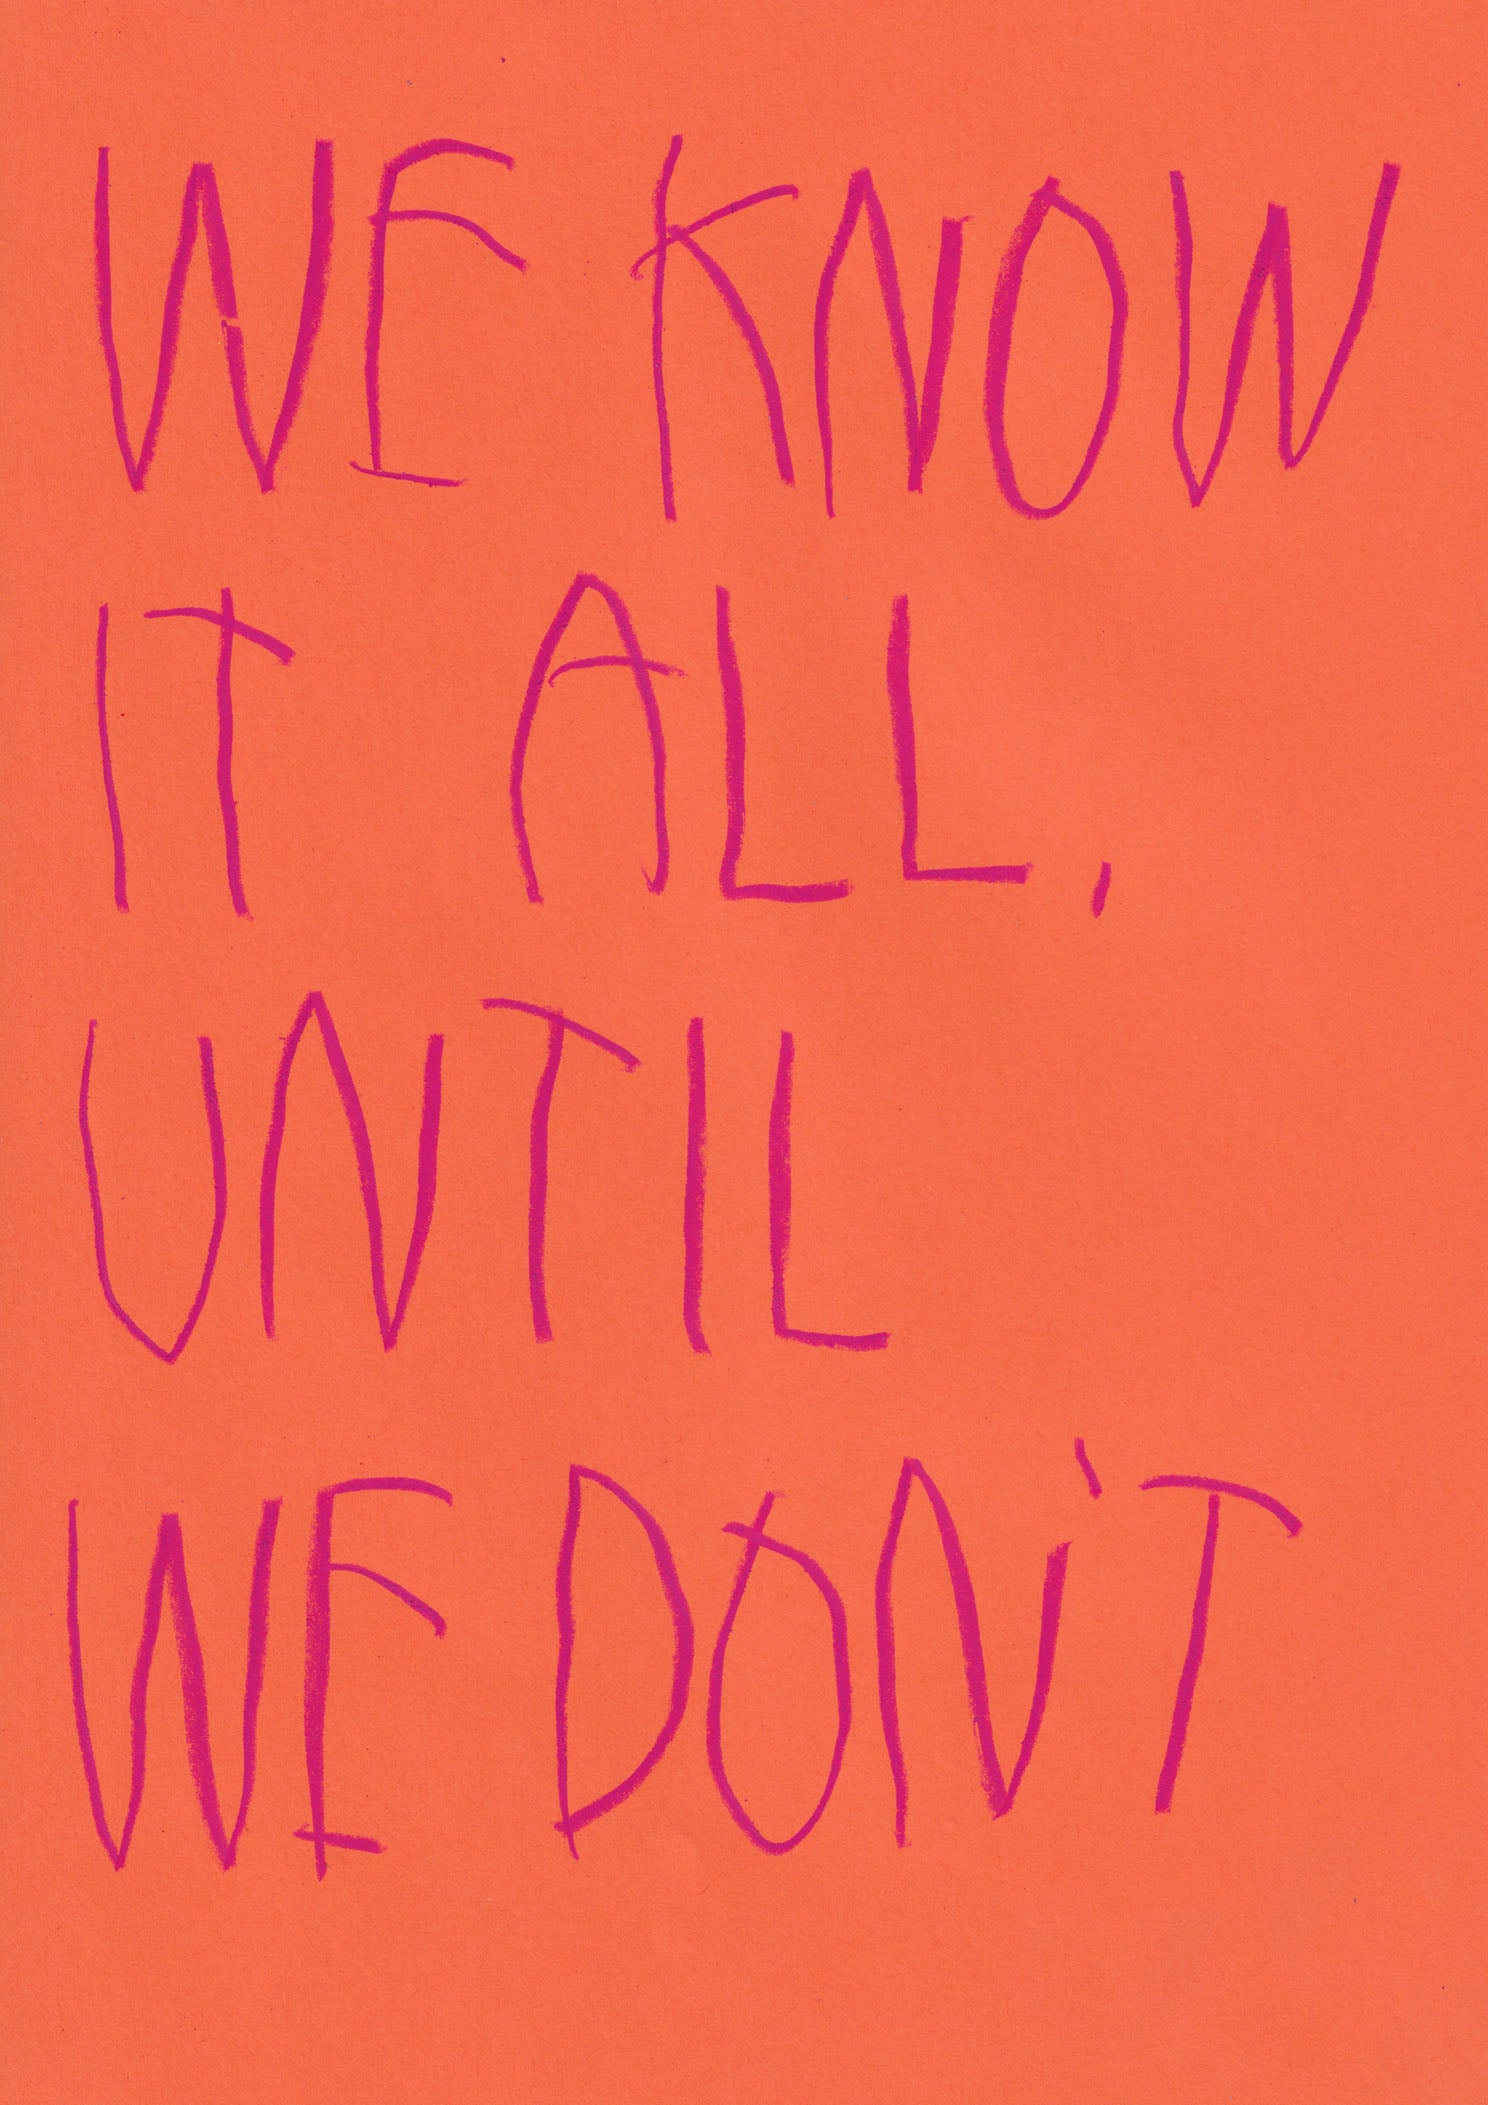 WE KNOW
IT ALL,
UNTIL
WE DON'T